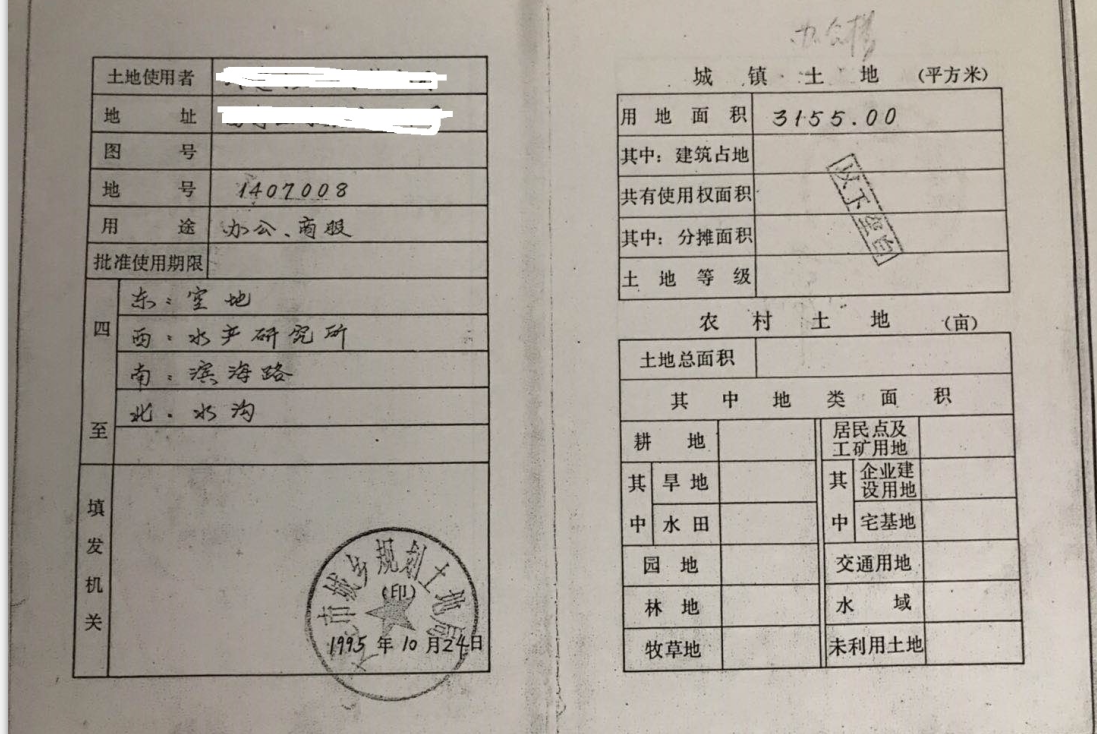 土地使用者
地 址
图 号
地 号 1407008
用 途 办公、商服
批准使用期限
四至
东：空地
西：水产研究所
南：滨海路
北：水沟
填发机关
市城乡规划土地局
(印)
1995 年 10 月 24 日
办公楼
城 镇 土 地 (平方米)
用地面积 3155.00
其中：建筑占地
共有使用权面积
其中：分摊面积
土 地 等 级
以下空白
农 村 土 地 (亩)
土地总面积
其 中 地 类 面 积
耕 地 居民点及工矿用地
其中 旱地 其中 企业建设用地
水田 宅基地
园 地 交通用地
林 地 水 域
牧草地 未利用土地